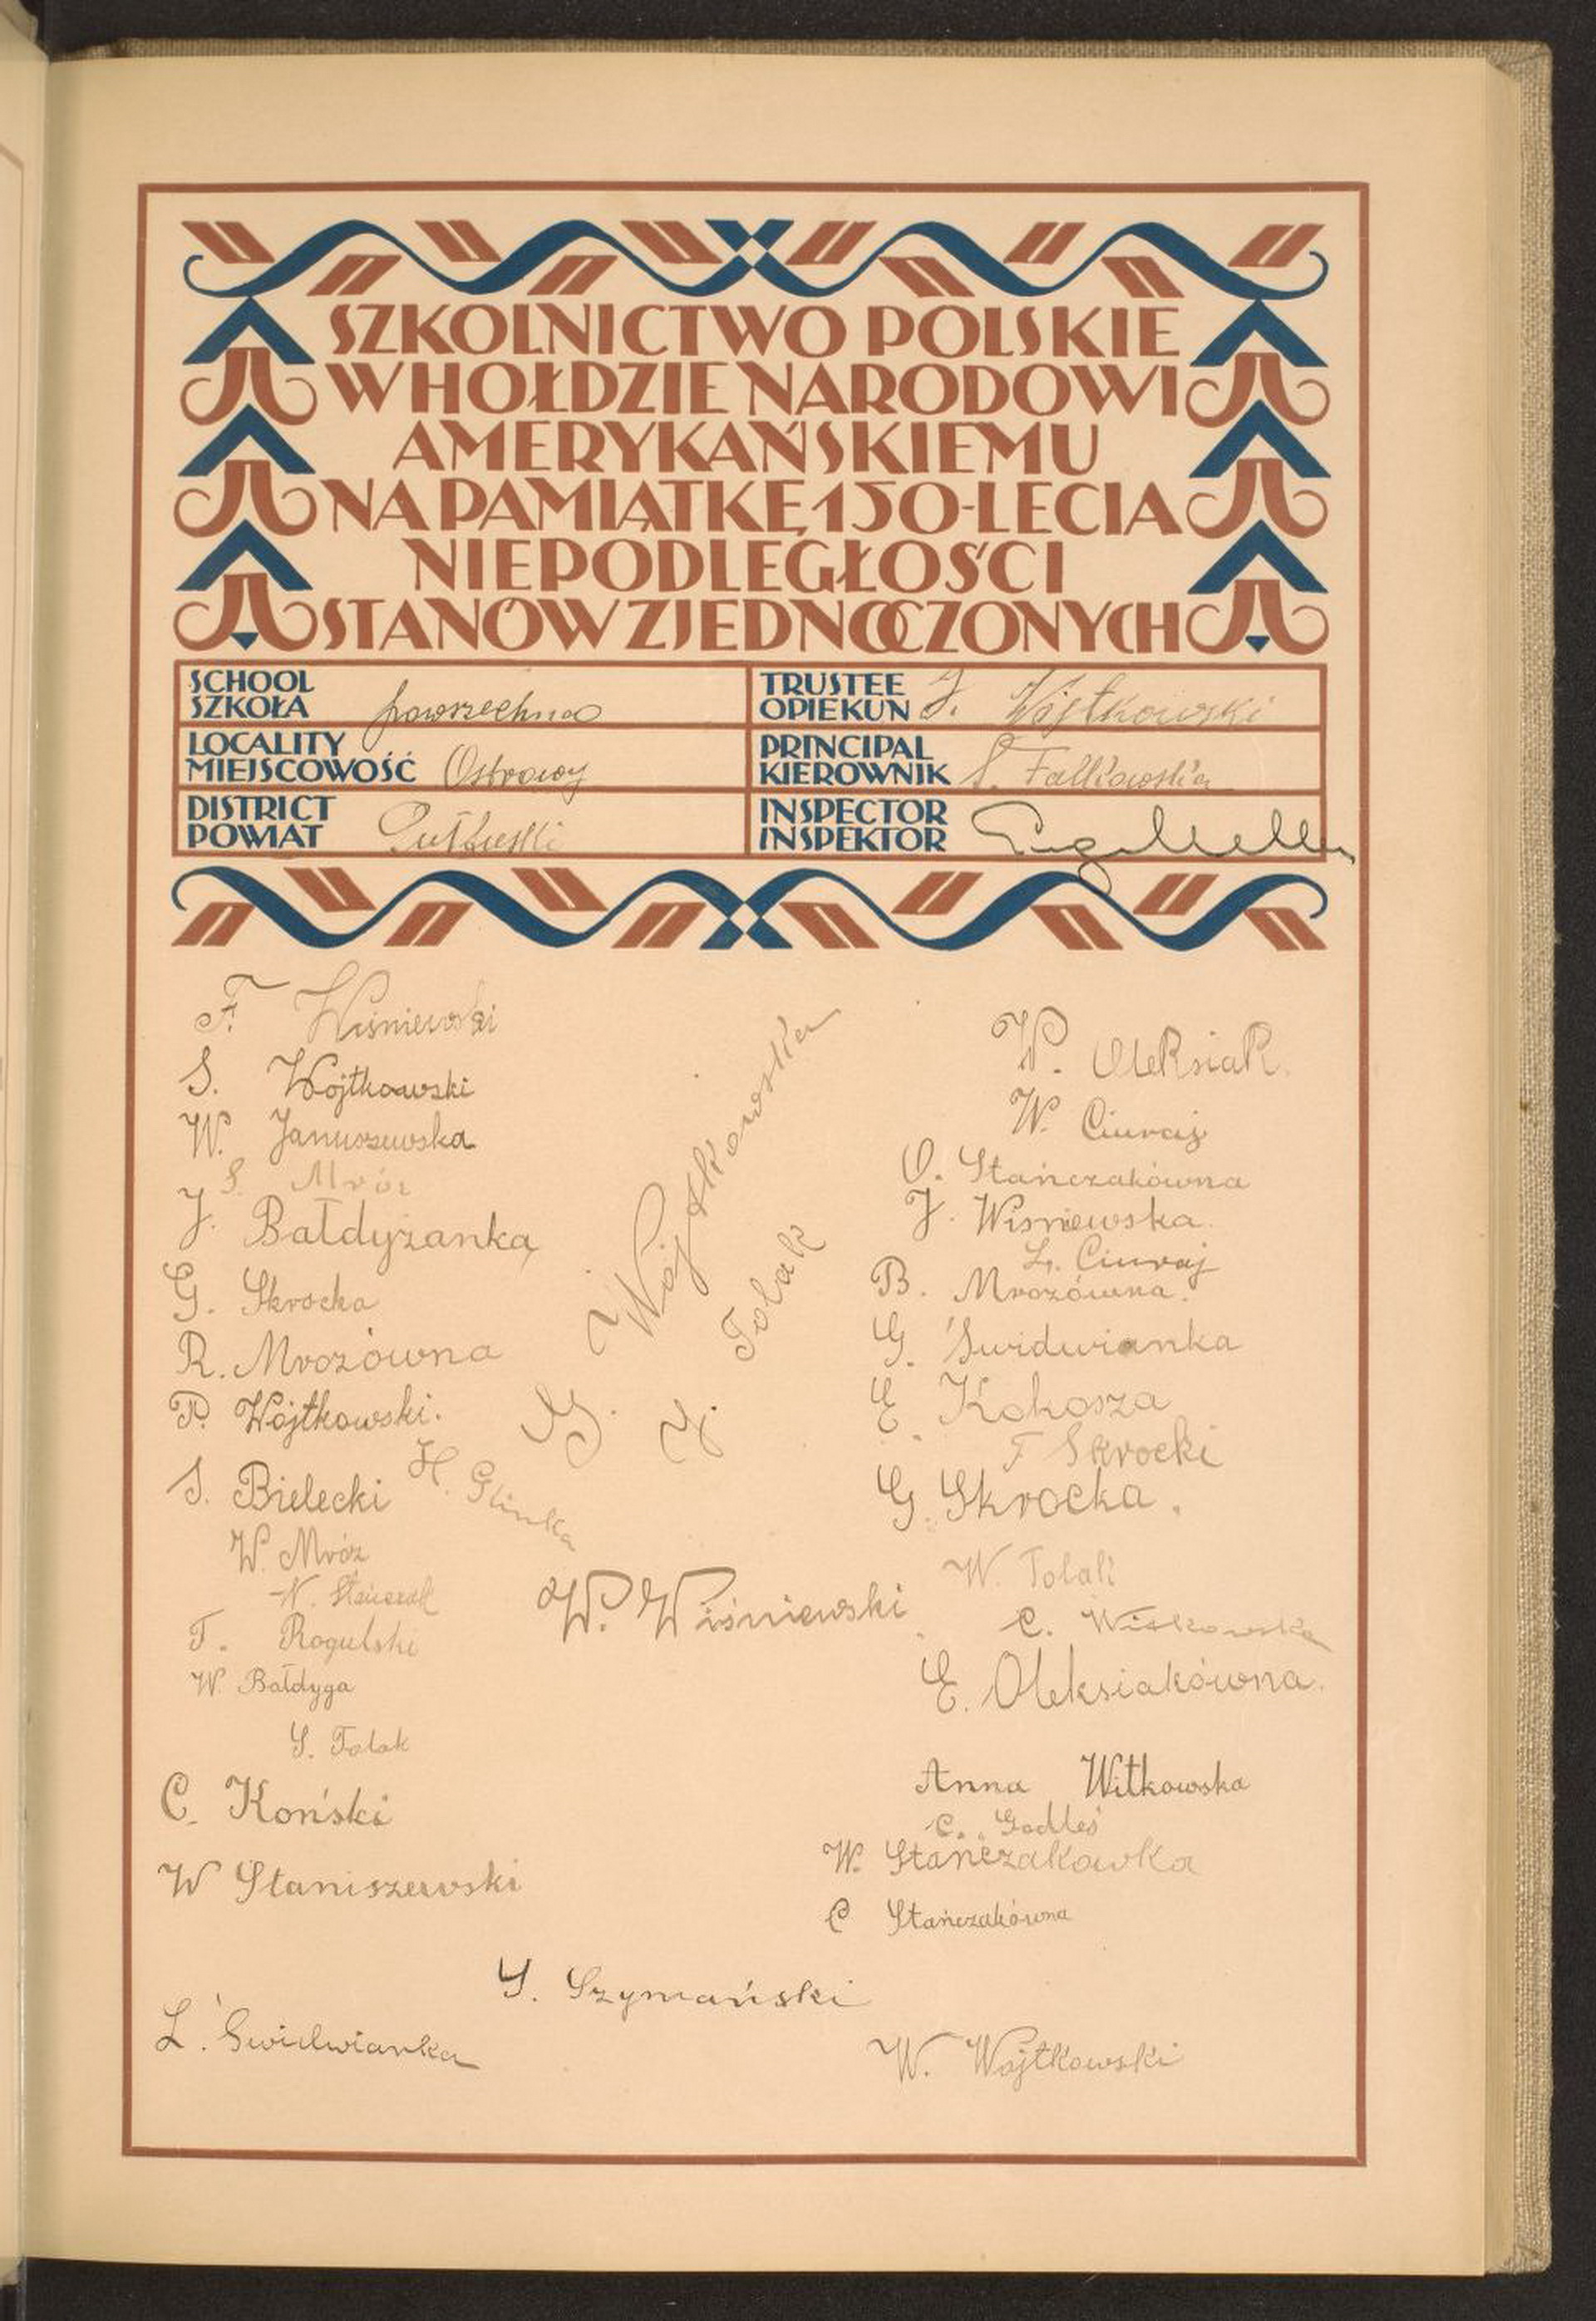 SZKOLNICTWO POLSKIE
W HOŁDZIE NARODOWI
AMERYKAŃSKIEMU
NA PAMIĄTKĘ 150-LECIA
NIEPODLEGŁOŚCI
STANÓW ZJEDNOCZONYCH
SCHOOL
SZKOŁA powszechna
TRUSTEE
OPIEKUN J. Wojtkowski
LOCALITY
MIEJSCOWOŚĆ Ostrowy
PRINCIPAL
KIEROWNIK S. Falkowska
DISTRICT
POWIAT Pułtuski
INSPECTOR
INSPEKTOR
F. Wiśniewski
S. Wojtkowski
W. Januszewska
S. Mróz
J. Bałdyżanka
G. Skrocka
R. Mrozówna
P. Wojtkowski.
S. Bielecki
H. Glinka
W. Mróz
N. Stańczak
T. Rogulski
W. Bałdyga
S. Tolak
C. Koński
W Staniszewski
L. Świdwianka
J. Wójtkowska
G. J. Tolak
W. Wiśniewski
S. Szymański
W. Oleksiak.
W. Ciuraj
O. Stańczakówna
J. Wisniewska.
L. Ciuraj
B. Mrozówna.
G. Świdwianka
E. Kokosza
F Skrocki
G. Skrocka.
W. Tolak
C. Witkowska
E. Oleksiakówna.
Anna Witkowska
C. Godleś
W. Stańczakowka
C Stańczakówna
W. Wojtkowski